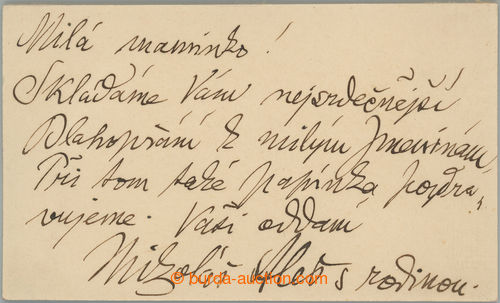 Milá maminko!
Skládáme Vám nejsrdečnější
Blahopřání k milým Jmeninám,
Při tom také papínka pozdra-
vujeme. Vaši oddaní
Mikoláš Aleš s rodinou.
© burda-auction.com